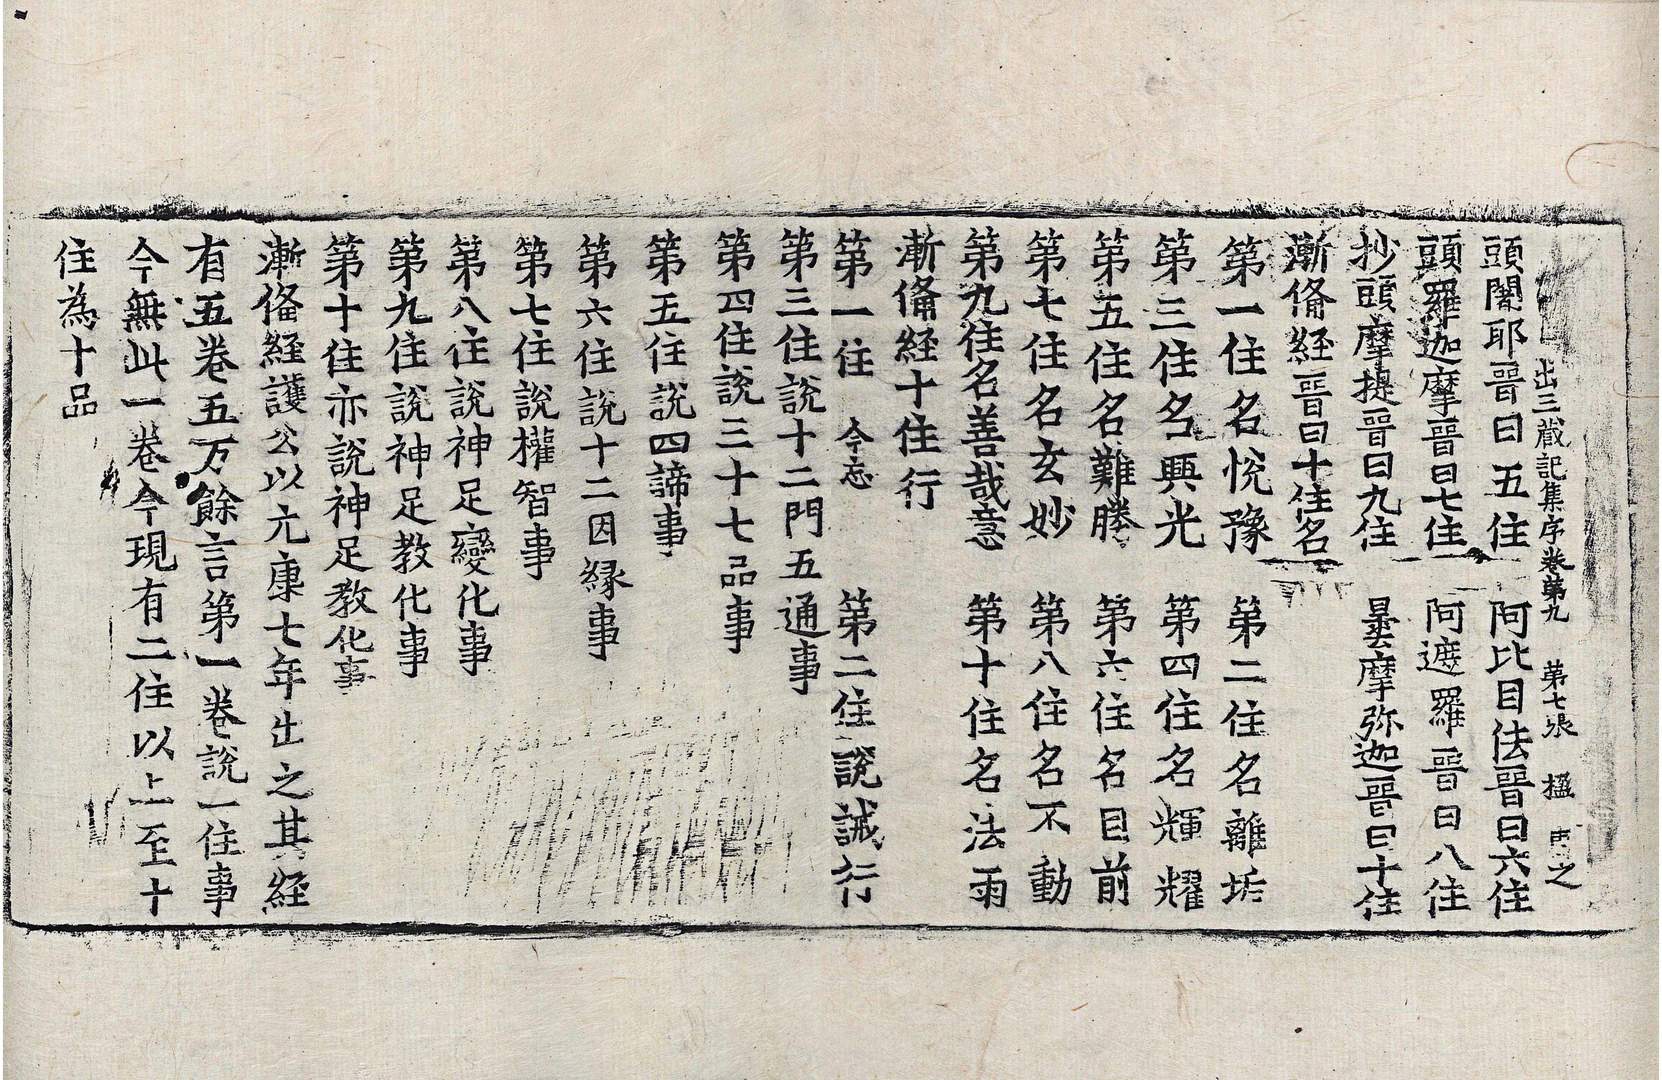 出三藏記集序卷第九 第七張 楹 之
頭闍耶晉曰五住 阿比目佉晉曰六住
頭羅迦摩晉曰七住 阿遮羅晉曰八住
抄頭摩提晉曰九住 曇摩弥迦晉曰十住
漸俻経晉曰十住名
第一住名悦豫 第二住名離垢
第三住名興光 第四住名輝耀
第五住名難勝 第六住名目前
第七住名玄妙 第八住名不動
第九住名善哉意 第十住名法雨
漸俻経十住行
第一住 今忘 第二住說誡行
第三住說十二門五通事
第四住說三十七品事
第五住說四諦事
第六住說十二因緣事
第七住說權智事
第八住說神足變化事
第九住說神足教化事
第十住亦說神足教化事
漸俻経護公以元康七年出之其経
有五卷五万餘言第一卷說一住事
今無此一卷今現有二住以上至十
住為十品